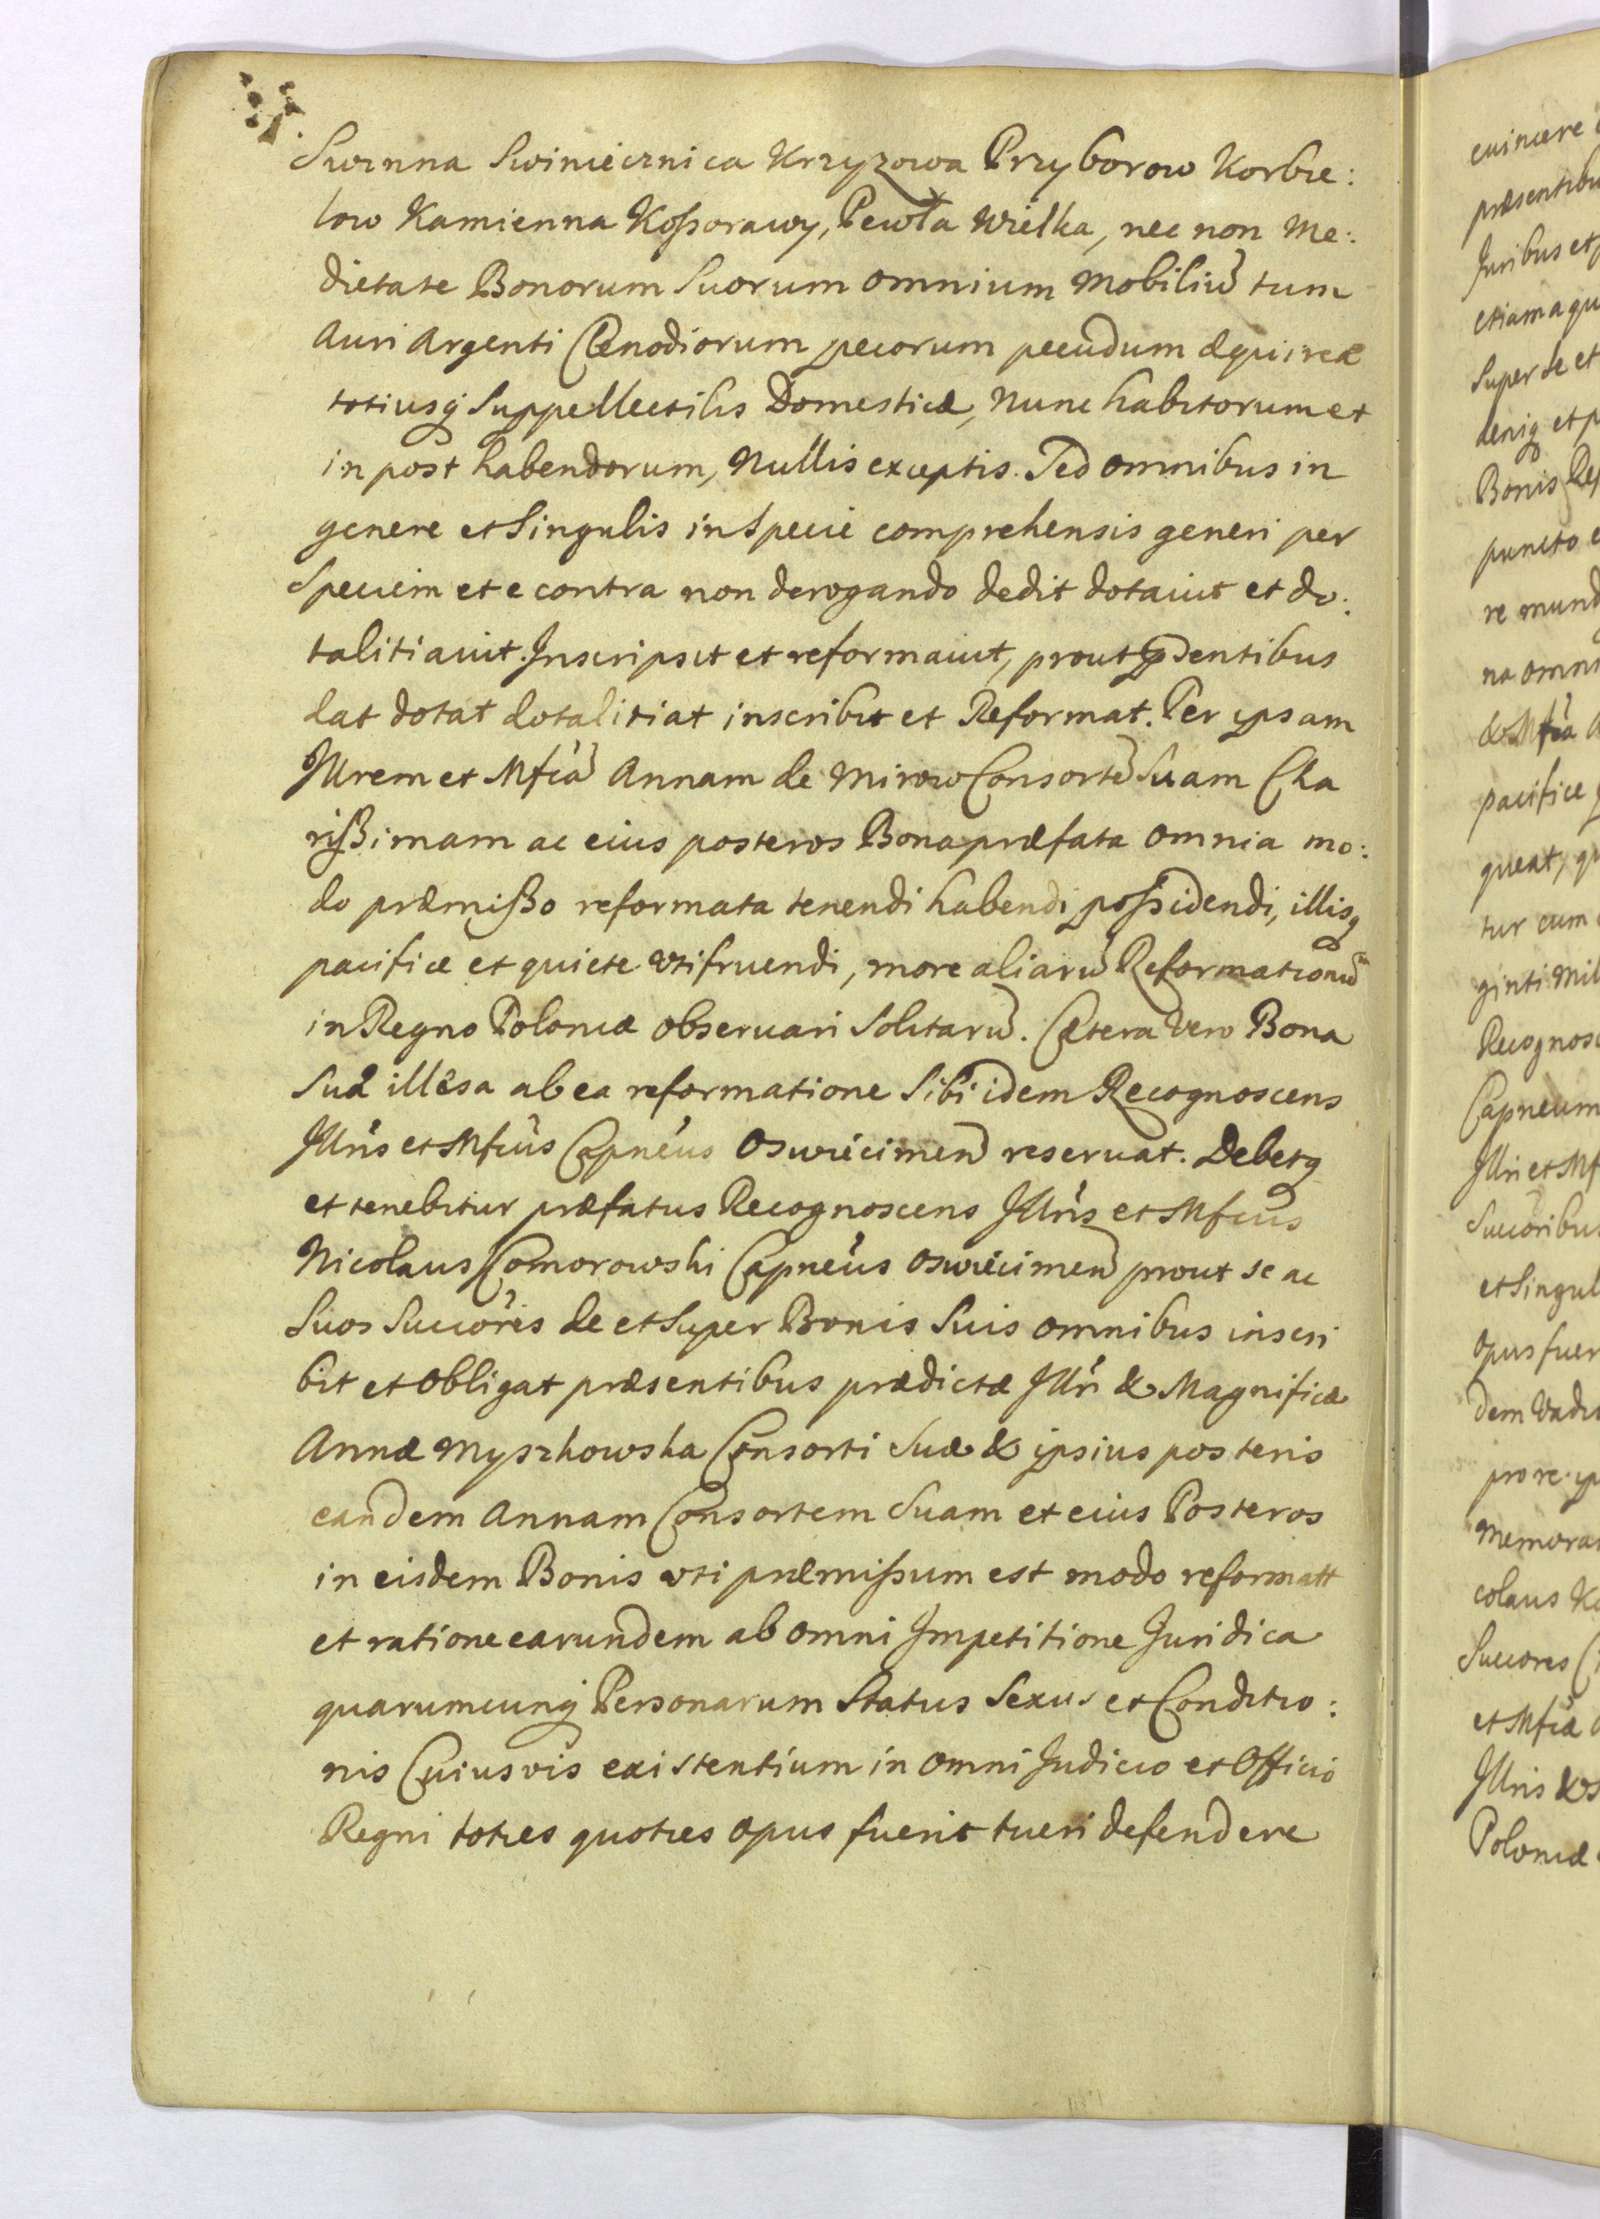 Swinna Swiniecznica Krzyzowa Przyborow Korbie:
low Kamienna Koßorawy, Pewła Wielka, nec non Me:
dietate Bonorum Suorum omnium Mobiliũ tum
Auri Argenti Clenodiorum pecorum pecudum æquireæ
totiusq́ Suppellectilis Domesticæ, Nunc habitorum et
in post habendorum, Nullis exceptis. Sed omnibus in
genere et Singulis in Specie comprehensis generi per
Speciem et e contra non derogando dedit dotauit et do:
talitiauit. Inscripsit et reformauit, prout p̃dentibus
dat dotat dotalitiat inscribit et Reformat. Per ipsam
Jllrem et Mfića͂ Annam de Mirow Consorte͂ Suam Cha
rißimam ac eius posteros Bona præfata omnia mo:
do præmißo reformata tenendi habendi poßidendi, illisq
pacifice et quiete vtifruendi, more aliarũ Reformationũ
in Regno Poloniæ obseruari Solitarũ. Cætera Vero Bona
Sua illêsa ab ea reformatione Sibi idem Recognoscens
Jllŕis et Mfićus Capnéus Oswiecimeñ reseruat. Debetq
et tenebitur præfatus Recognoscens Jllŕis et Mfićus
Nicolaus Comorowski Capnéus Oswiecimeñ prout se ac
Suos Succores de et Super Bonis Suis omnibus inscri
bit et Obligat præsentibus prædictæ Jllŕi & Magnificæ
Annæ Myszkowska Consorti Suæ & ipsius posteris
eandem Annam Consortem Suam et eius Posteros
in eisdem Bonis vti præmißum est modo reformatt
et ratione earundem ab omni Impetitione Juridica
quarumcunq́ Personarum Status Sexus et Conditio:
nis Cuiusvis existentium in omni Judicio et Officio
Regni toties quoties opus fuerit tueri defendere
euincere
præsentibu
Juribus et
etiam a qu
Super se et
deniq et p
Bonis
puncto
re mund
na omni
& Mfića
pacifice
queat, qu
tur cum
ginti Mil
Recognosc
Capneum
Jllŕi et Mf
Succoribus
et Singul
opus fuer
dem Vadi
pro re ip
memora
colaus K
Succores
et Mfićæ
Jllris &
Poloniæ